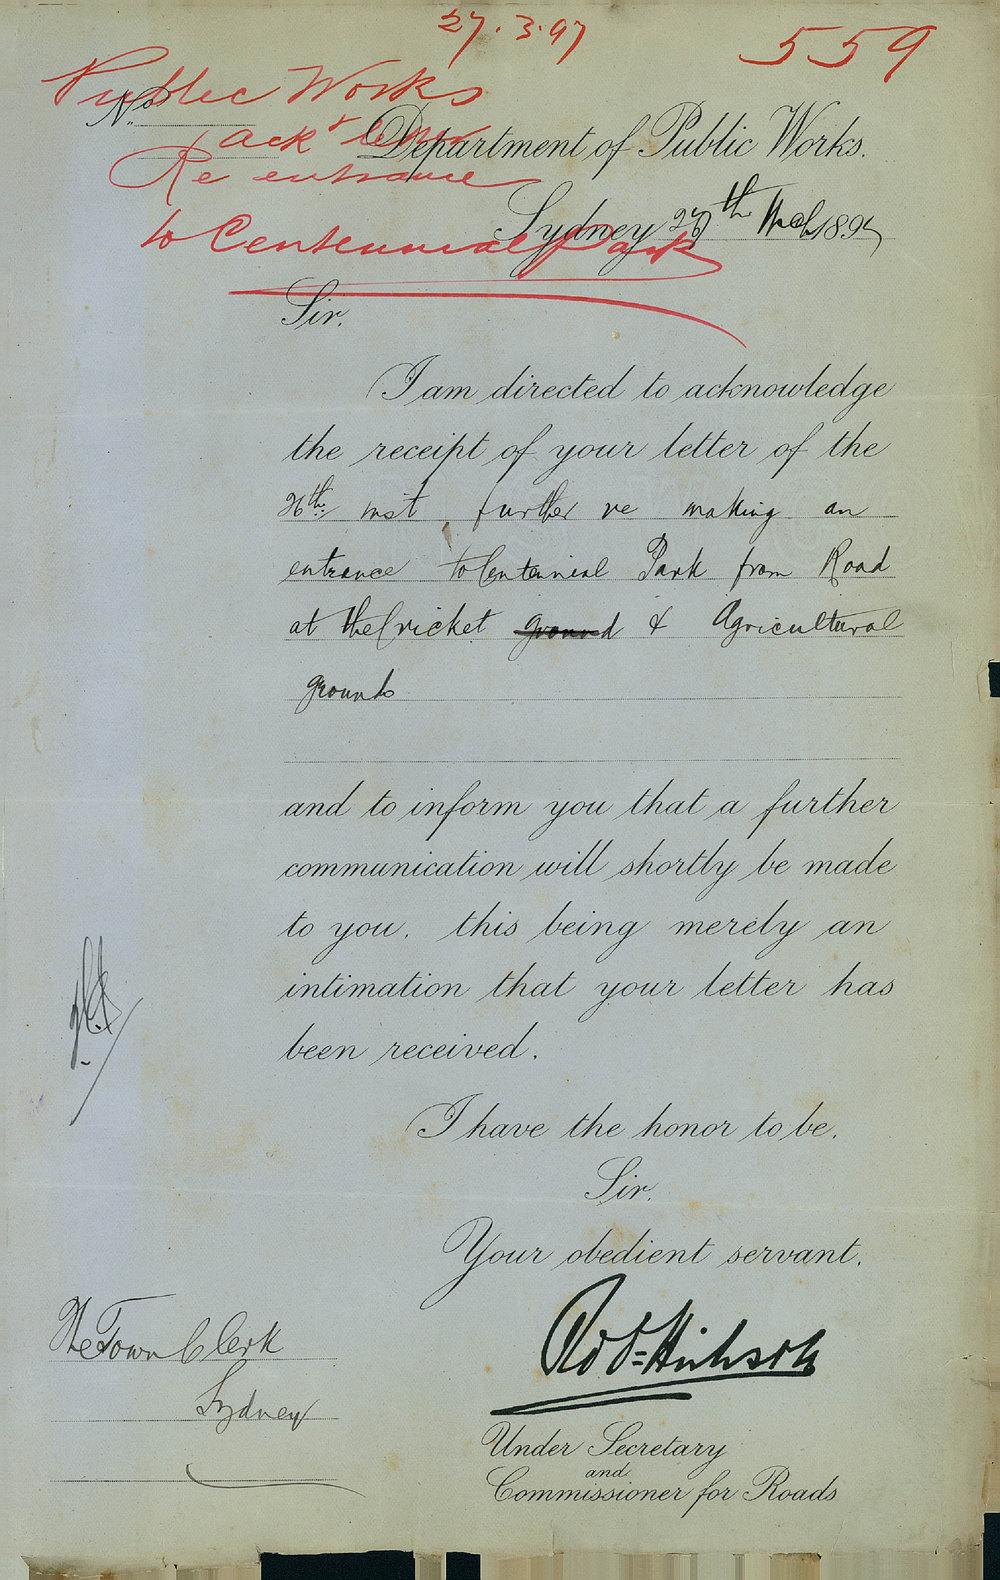 27.3.97
559
Public Works
No.
ackt letter
Department of Public Works.
Re entrance
Sydney 27th Mch 1897
to Centennial Park
Sir,
I am directed to acknowledge
the receipt of your letter of the
26th inst further re making an
entrance to Centennial Park from Road
at the Cricket ground & Agricultural
grounds
and to inform you that a further
communication will shortly be made
to you, this being merely an
intimation that your letter has
been received.
I have the honor to be,
Sir,
Your obedient servant,
Robt Hickson
The Town Clerk
Sydney
Under Secretary
and
Commissioner for Roads